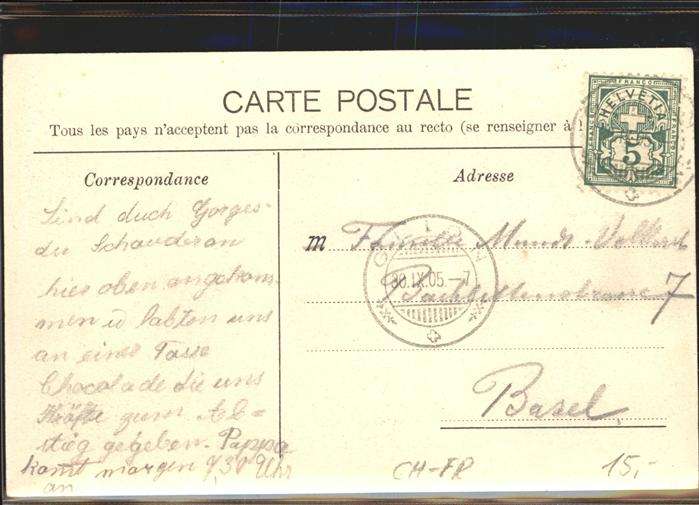 CARTE POSTALE
Tous les pays n'acceptent pas la correspondance au recto (se renseigner à
FRANCO
HELVETIA
5
Correspondance
Adresse
Sind duch Gorges-
du Schauderon
hier oben angekom-
men u labten uns
an einer Tasse
Chocolade die uns
Kräfte zum Ab=
stieg gegeben. Pappa
komt morgen 7,30 Uhr
an
m Familie Mundt-Volkart
30.IX.05.-7
Bachlettenstrasse 7
Basel.
CH-FR
15,-